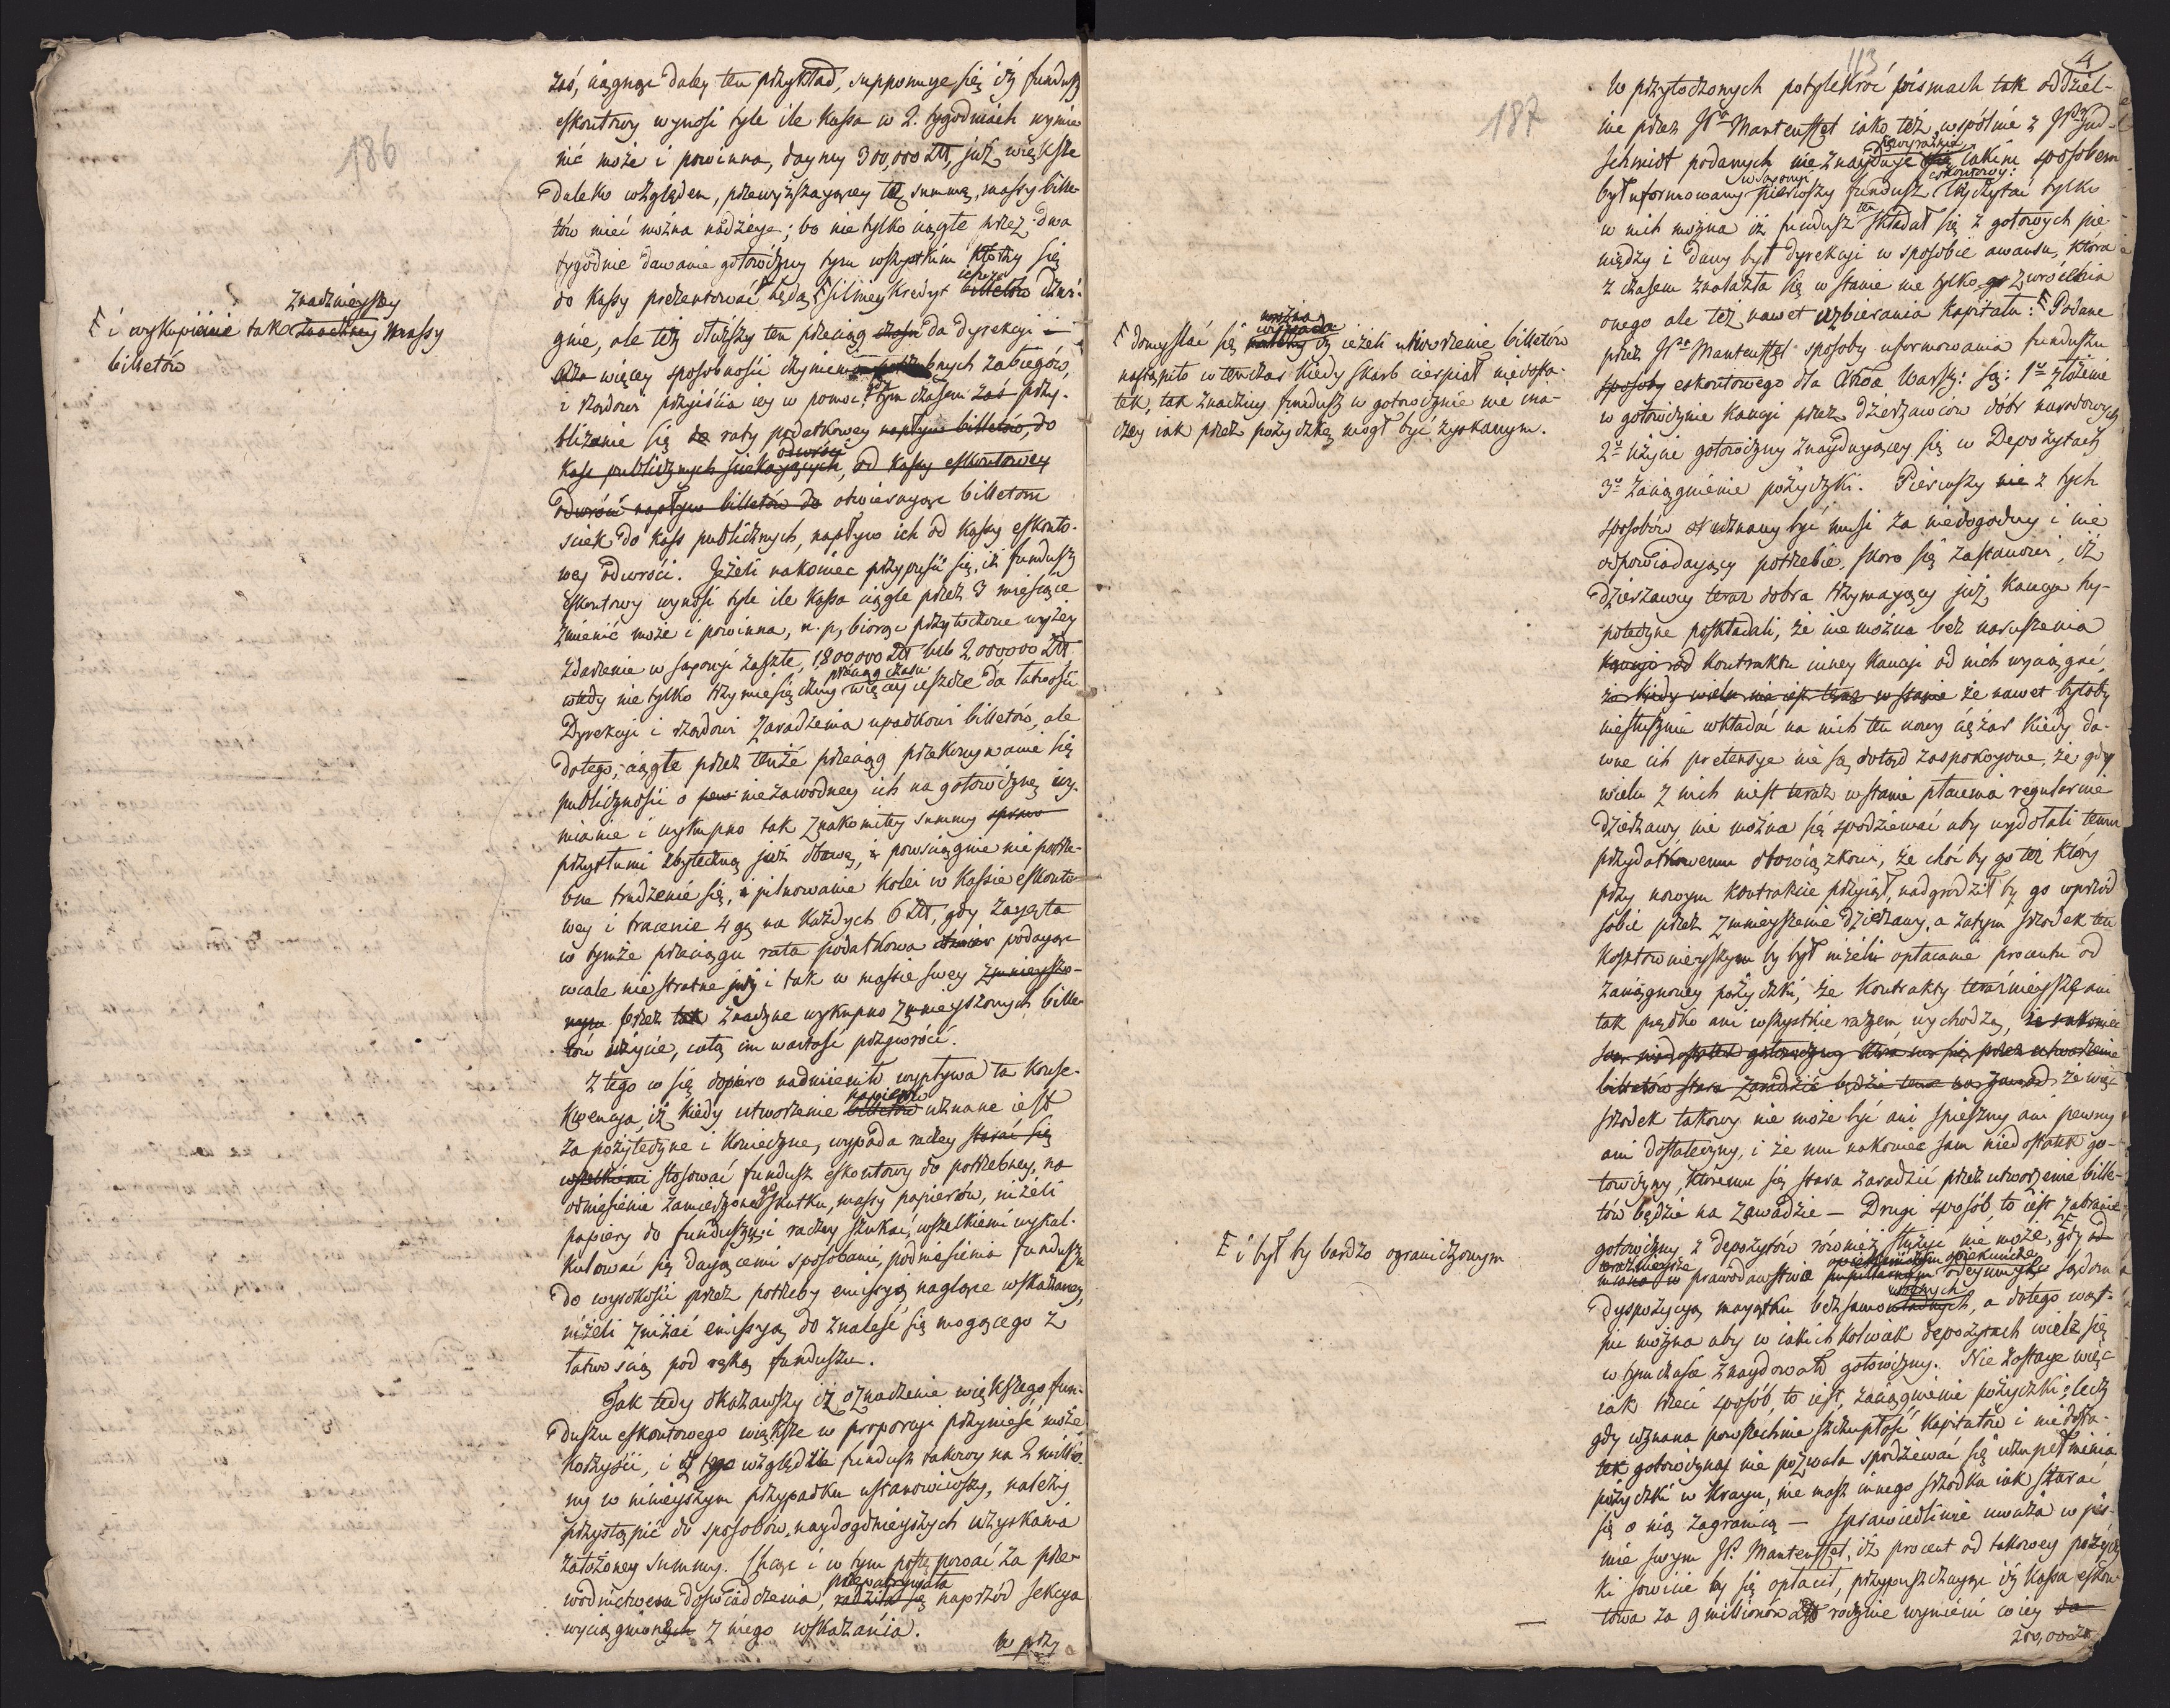 186
zaś, ciągnąc daley ten przykład, supponuye się iż fundusz
eskontowy wynosi tyle ile Kassa w 2. tygodniach wymie
nić może i powinna, daymy 300,000 Złt, już większe
daleko względem, przewyższaiącey tę summę, massy bille-
tów mieć można nadzieię; bo nie tylko ciągłe przez dwa
tygodnie dawanie gotowizny tym wszystkim którzy się
do Kassy prezentować będą silniey Kredyt billetów dźwi-
gnie, ale też dłuższy ten przeciąg czasu da Dyrekcyi
więcey sposobności czynienia potrzebnych zabiegów,
i Rządowi przyiścia iey w pomoc, tym czasem zaś przy-
bliżanie się raty podatkowey napływ billetów, do
Kass publicznych odwróci, od Kassy eskontowey
odwróci napływ billetów do otwieraiąc billetom
ściek do Kass publicznych, napływ ich od Kassy eskonto-
wey odwróci. Jeżeli nakoniec przypuści się, iż fundusz
eskontowy wynosi tyle ile Kassa ciągle przez 3 miesiące
zmienić może i powinna, n. p, biorąc przytoczone wyżey
zdarzenie w Saxonji zaszłe, 1,800,000 Złt lub 2,000000 Złt
wtedy nie tylko trzymiesięczny przeciąg czasu więcey ieszcze da łatwości
Dyrekcyi i rządowi zaradzenia upadkowi billetów, ale
dotego, ciągłe przez tenże przeciąg przekonywanie się
publiczności o niezawodney ich na gotowiznę wy-
mianie i wykupno tak znakomitey summy
przytłumi zbyteczną już obawę, i powściągnie nie potrze-
bne trudzenie się, i pilnowanie kolei w Kassie eskonto-
wey i tracenie 4 gr na każdych 6 Złt, gdy zaczęta
w tymże przeciągu rata podatkowa podaiąc
wcale nie stratne iuż i tak w massie swey zmnieyszo-
przez tak znaczne wykupno zmnieyszonych bille-
tów użycie, całą im wartość przywróci.
Z tego co się dopiero nadmieniło wypływa ta konse-
kwencya, iż kiedy utworzenie papierów billetów uznane iest
za pożyteczne i konieczne, wypada raczey starać się
wszelkiemi stosować fundusz eskontowy do potrzebney, na
odniesienie zamierzonego skutku, massy papierów, niżeli
papiery do funduszu; i raczey szukać, wszelkiemi wykal-
kulować się daiącemi sposobami, podniesienia funduszu
do wysokości przez potrzeby emissyą naglące wskazaney,
niżeli zniżać emissyą do znaleść się mogącego z
łatwością pod ręką funduszu.
Tak tedy okazawszy iż oznaczenie większego fun-
duszu eskontowego większe w proporcyi przynieść może
korzyści, i z tego względu fundusz takowy na 2 millio-
ny w ninieyszym przypadku ustanowiwszy, należy
przystąpić do sposobów naydogodnieyszych uzyskania
założoney summy. Chcąc i w tym postępować za prze-
wodnictwem doświadczenia, naprzód Sekcya
wyciągnionych z niego wskazania.
W przy
Ⱶ i wykupienie tak znacznieyszey znaczney massy
billetów
187
113
4
W przytoczonych potylekroć pismach tak oddziel-
nie przez JPa Manteuffel iako też wspólnie z JPem Gud-
schmidt podanych nie znayduie się iakim sposobem
był uformowany w Saxonji pierwszy fundusz eskontowy: wyczytać tylko
w nich można iż fundusz ten składał się z gotowych pie-
niędzy i dany był Dyrekcyi w sposobie awansu, która
z czasem znalazła się w stanie nie tylko zwrócenia
onego ale też nawet uzbierania Kapitału. Ⱶ Podane
przez JPa Manteuffel sposoby uformowania funduszu
sposoby eskontowego dla Xtwa Warsz: są: 1o złożenie
w gotowiznie kaucyi przez dzierżawców dóbr narodowych
2o użycie gotowizny znayduiącey się w Depozytach
3o zaciągnienie pożyczki. Pierwszy z tych
sposobów uznany być musi za niedogodny i nie
odpowiadaiący potrzebie, skoro się zastanowi, iż
Dzierżawcy teraz dobra trzymaiący już, kaucye hy-
poteczne poskładali, że nie można bez naruszenia
kontraktu inney kaucyi od nich wyciągnąć,
że nawet byłoby
niesłusznie wkładać na nich ten nowy ciężar kiedy da-
wne ich pretensye nie są dotąd zaspokoione, że gdy
wielu z nich niest teraz w stanie płacenia regularnie
dzierżawy nie można się spodziewać aby wydołali temu
przydatkowemu obowiązkowi, że choć by go też który
przy nowym kontrakcie przyiął, nadgrodził by go wprzód
sobie przez zmnieyszenie dzierżawy, a zatym srzodek ten
kosztownieyszym by był niżeli opłacanie procentu od
zaciągnioney pożyczki, że kontrakty teraźnieysze ani
tak prędko ani wszystkie razem wychodzą, że nakoniec
sam niedostatek gotowizny przez utworzenie
billetów stara zaradzić będzie na zawadzie, że więc
srzodek takowy nie może być ani spieszny ani pewny
ani dostateczny, i że mu nakoniec sam niedostatek go-
towizny, któremu się stara zaradzić przez utworzenie bille-
tów będzie na zawadzie — Drugi sposób, to iest zabranie
gotowizny z depozytów również służyć nie może, Ⱶ gdy
w prawodawstwie odeymuie sądom
dyspozycyą maiątku bezsamowładnych, a dotego wąt-
pić można aby w iakich kolwiek depozytach wiele się
w tym czasie znaydowało gotowizny. Nie zostaie więc
iak trzeci sposób, to iest, zaciągnienie pożyczki; lecz
gdy uznana powszechnie szczupłość kapitałów i niedosta-
tek gotowizny nie pozwala spodziewać się uzupełnienia
pożyczki w kraiu, nie masz innego srzodka iak starać
się o nią zagranicą — Sprawiedliwie uważa w piś-
mie swym JP. Manteuffel, iż procent od takowey pożycz-
ki sowicie by się opłacił, przypuszczaiąc iż Kassa eskon-
towa za 9 millionów Złt rocznie wymieni co iey
280,000 Zł
Ⱶ domyślać się można iż ieżeli utworzenie billetów
nastąpiło w tenczas kiedy skarb cierpiał niedosta-
tek, tak znaczny fundusz w gotowiznie nie ina-
czey iak przez pożyczkę mógł być zyskanym.
Ⱶ i był by bardzo ograniczonym